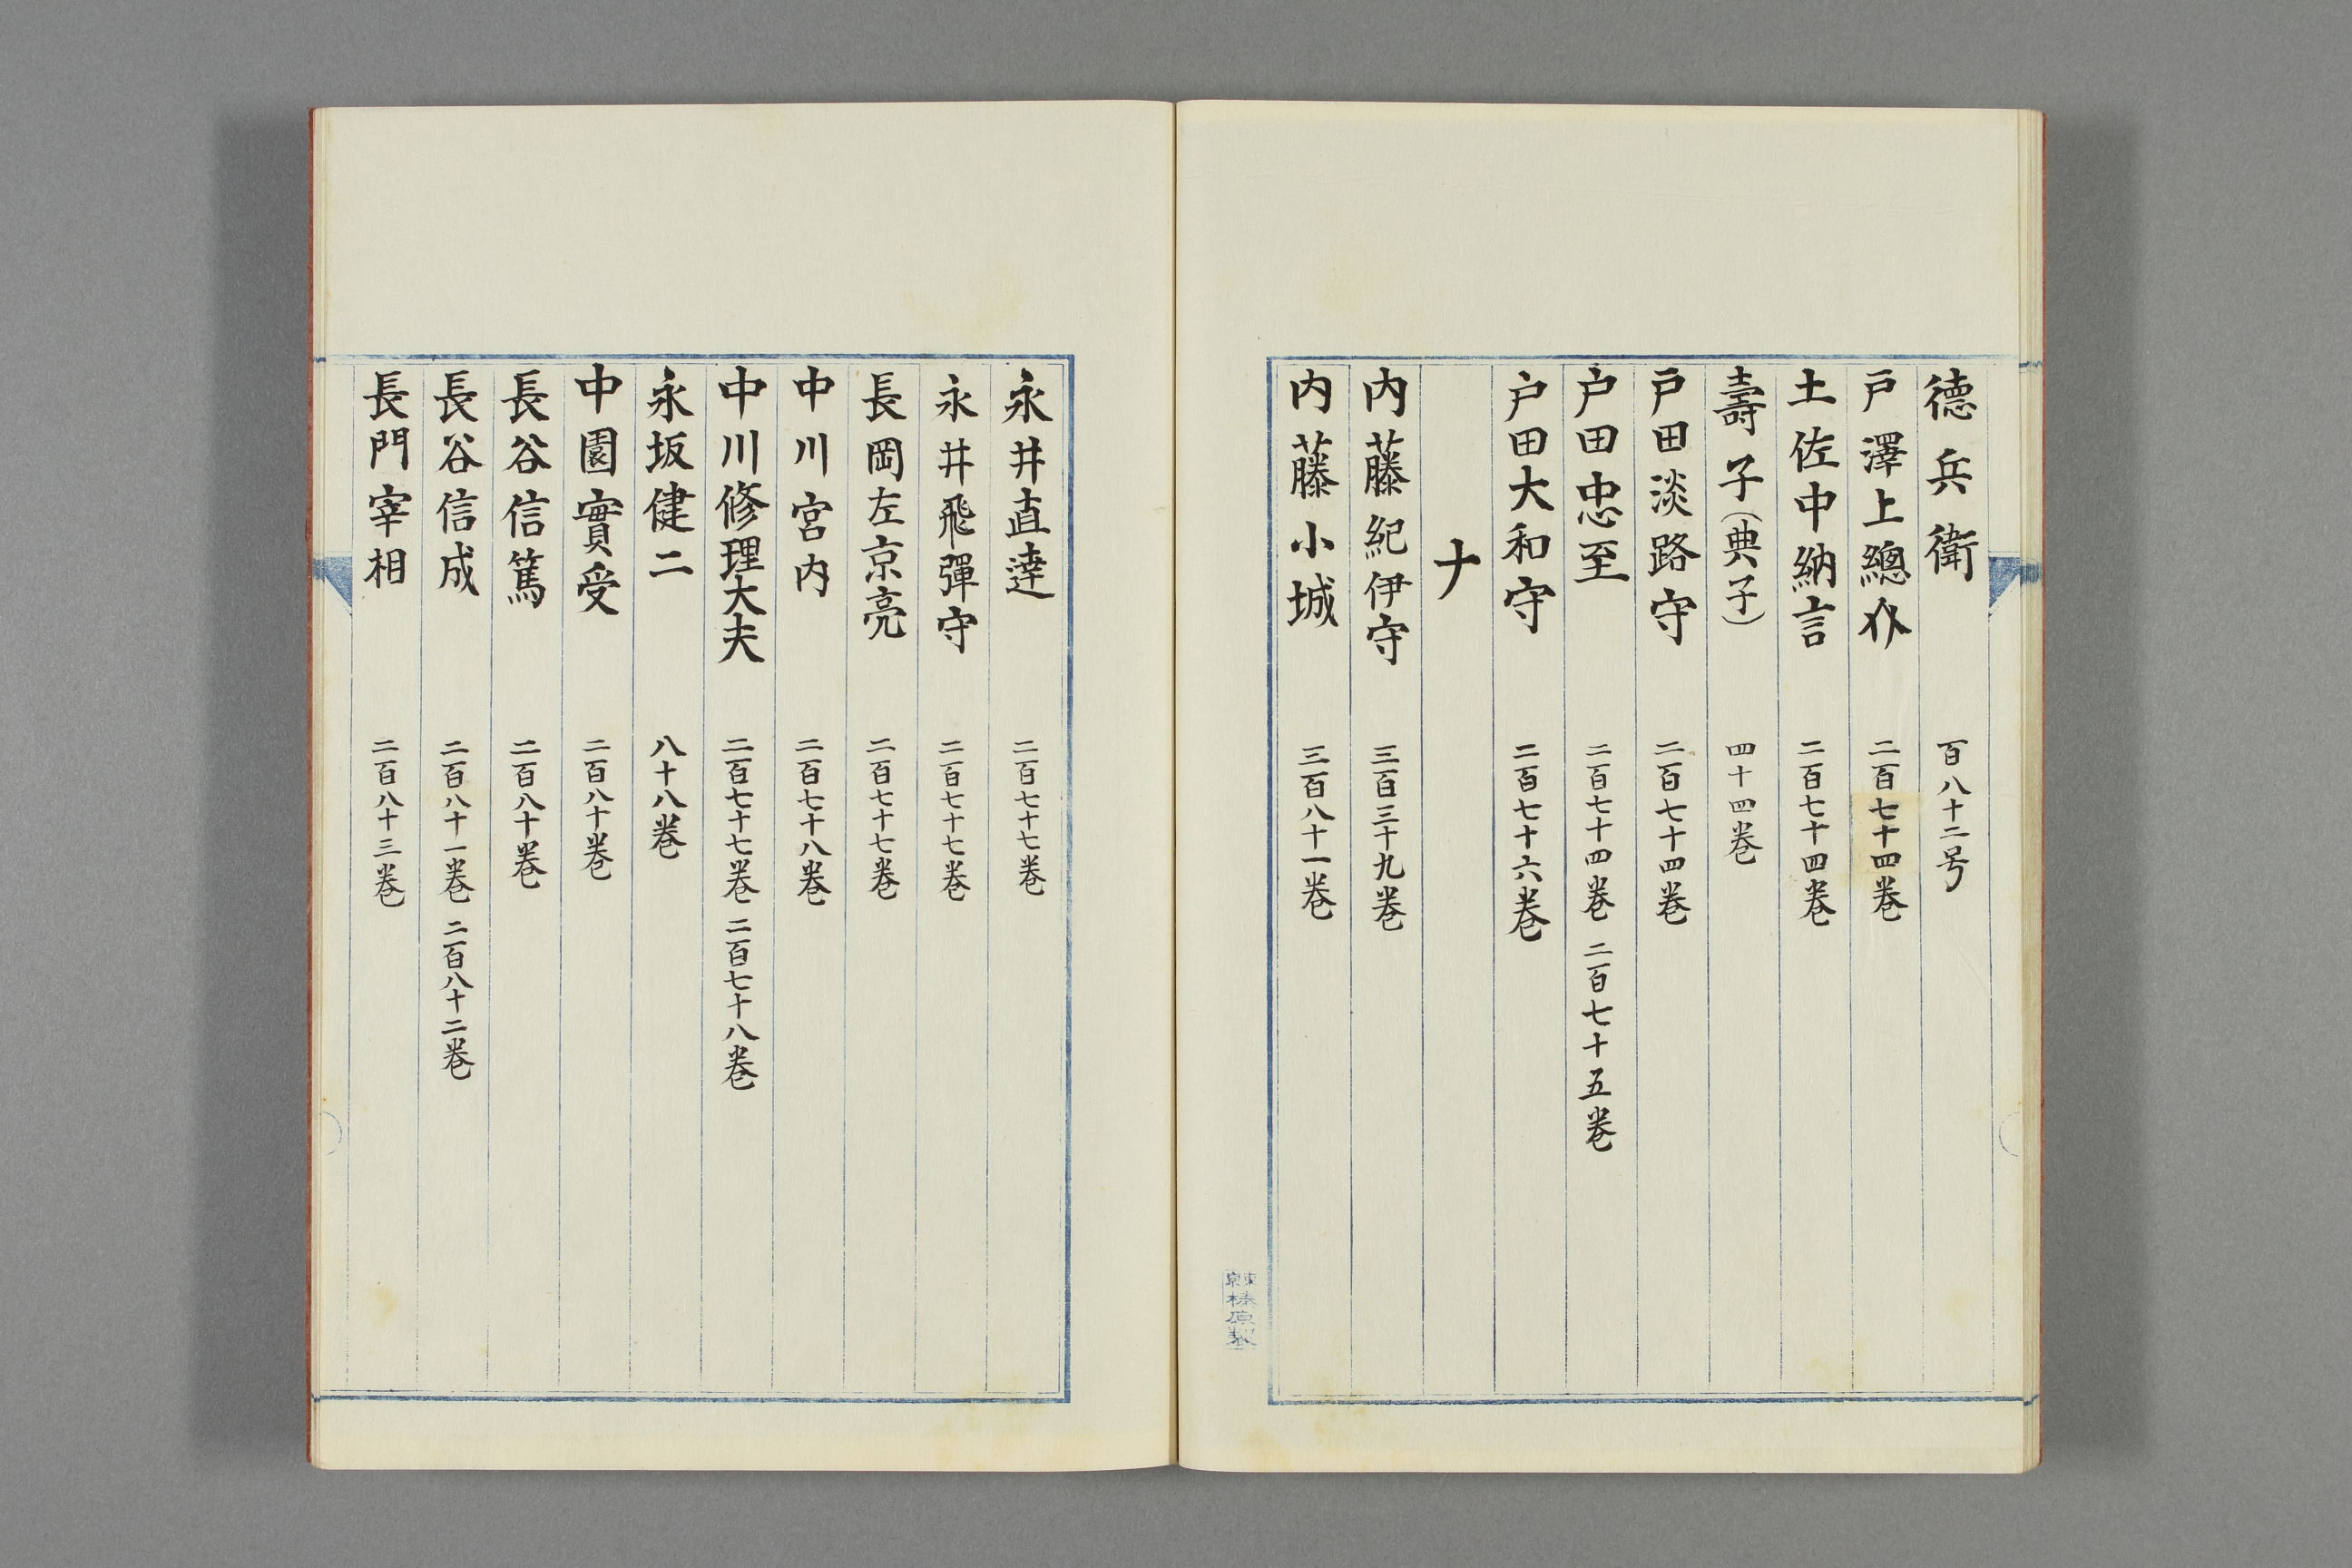 德兵衛 百八十二号
戸澤上總介 二百七十四巻
土佐中納言 二百七十四巻
壽子(典子) 四十四巻
戸田淡路守 二百七十四巻
戸田忠至 二百七十四巻 二百七十五巻
戸田大和守 二百七十六巻
ナ
内藤紀伊守 三百三十九巻
内藤小城 三百八十一巻
東京榛原製
永井直達 二百七十七巻
永井飛彈守 二百七十七巻
長岡左京亮 二百七十七巻
中川宮内 二百七十八巻
中川修理大夫 二百七十七巻 二百七十八巻
永坂健二 八十八巻
中園實受 二百八十巻
長谷信篤 二百八十巻
長谷信成 二百八十一巻 二百八十二巻
長門宰相 二百八十三巻